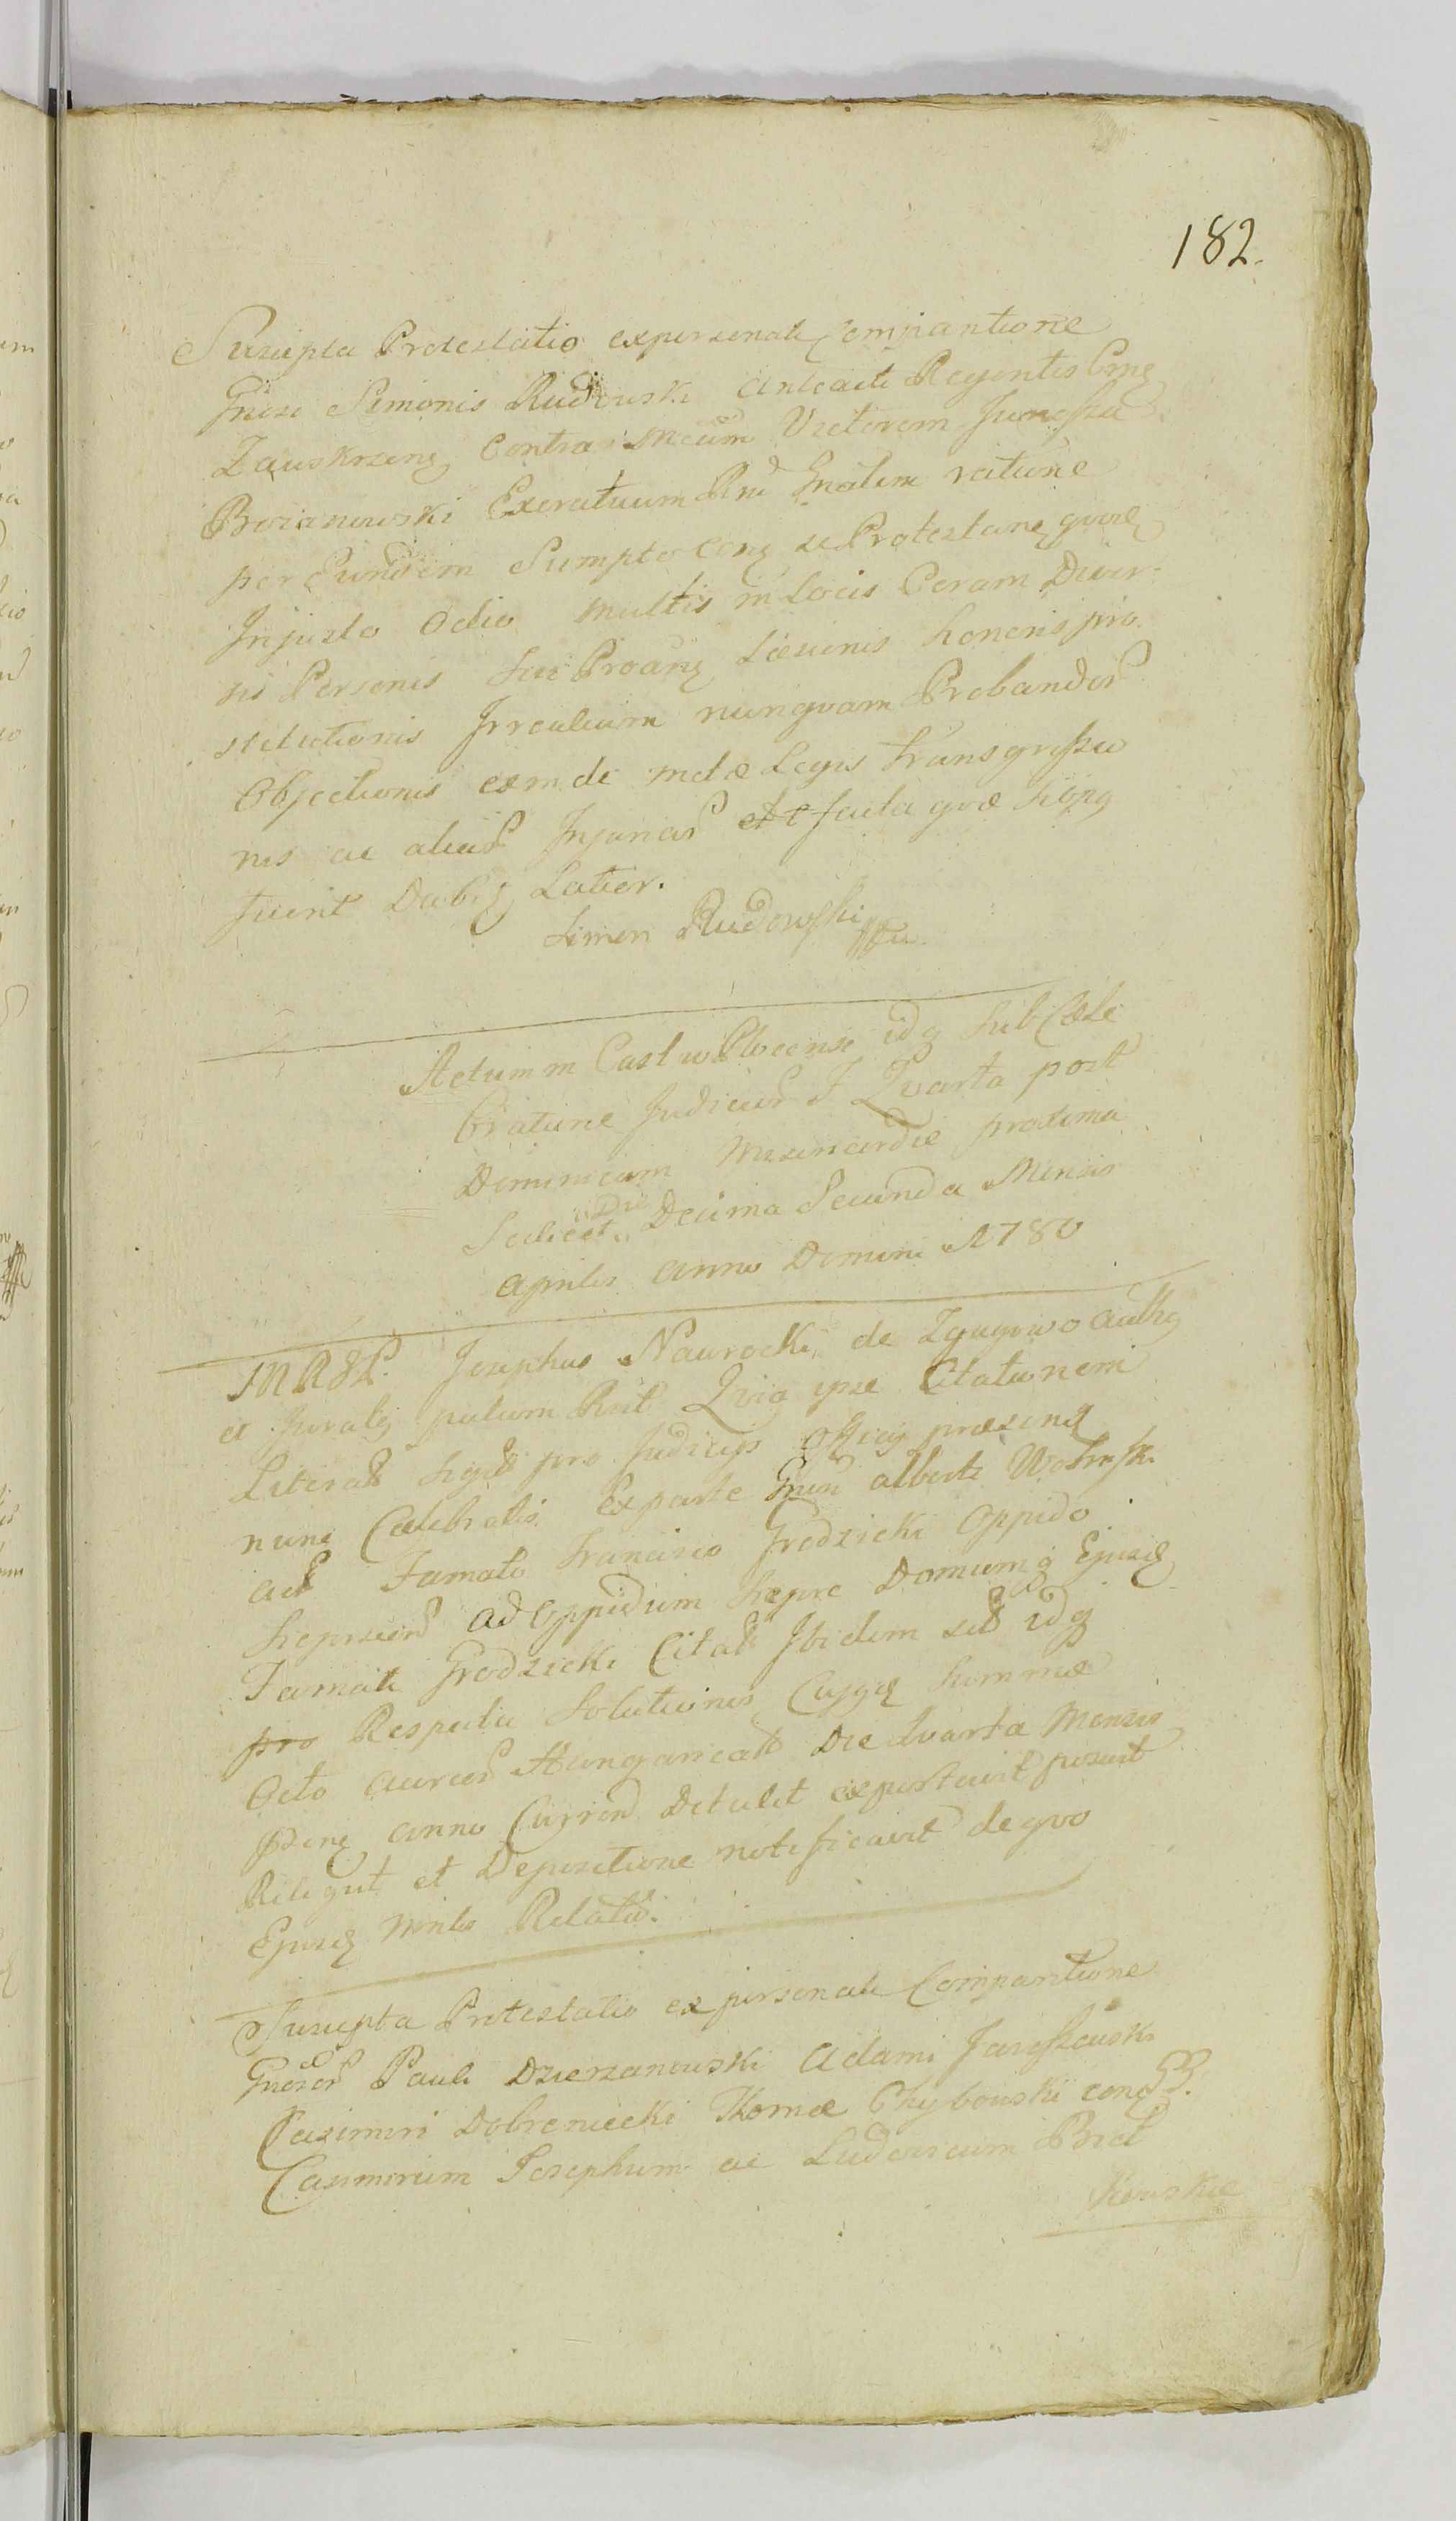 182.
Suscepta Protestatio ex personali Comparitione
Gnosi Simonis Rudowski anteacti Regentis Crnę
Zawskrzenę Contra Mcum Victorem Junosza
Brozanowski Exeratuum Rni Gnalem ratione
per Eundem Sumpto conę se Protestanę quod
Injusto Odio multis in Locis Coram Diver-
sis Personis sui Proanę Læsionis honoris pro-
stitutionis Irrealium nunquam Probandor
Objectionis eamde metæ Legis transgressio
nis ac aliar Injuriar et facta quæ
fuerit Dabię Latior.
Simon Rudowski mpu
Actum in Castro Plocensi idq sub Cæle
bratione Judicior F Quarta post
Dominicam Misericordiæ proxima
Scilicet Die Decima Secunda Mensis
Aprilis Anno Domini 1780
MRSP. Josephus Nawrocki de Zgagowo authę
et juratę pulum Rnit Quia ipse Citationem
Literal sigil pro Judicijs Officij præsenę
nunc Celebratis Ex parte Gnosi Alberti Wolinski
act Famato Francisco Grodzicki Oppido
Sieprscen ad Oppidum Siepre Domumq Ejusd
Famati Grodzicki Citati Ibidem sit idq
pro Respectu Solutionis Cujusd Summæ
Octo aureor Hungaricall Die Quarta Mensis
Pdenę anno Curren Detulit exportavit posuit
Reliquit et Depositione notificavit de quo
Ejusd Minlis Relatio.
Suscepta Protestatio ex personali Comparitione
Gnosor Pauli Dzierzanowski Adami Jaroszewski
Casimiri Dobrzeniecki Thomæ Chybowski conę GG.
Casimirum Josephum ac Ludovicum Briet
Kowskie